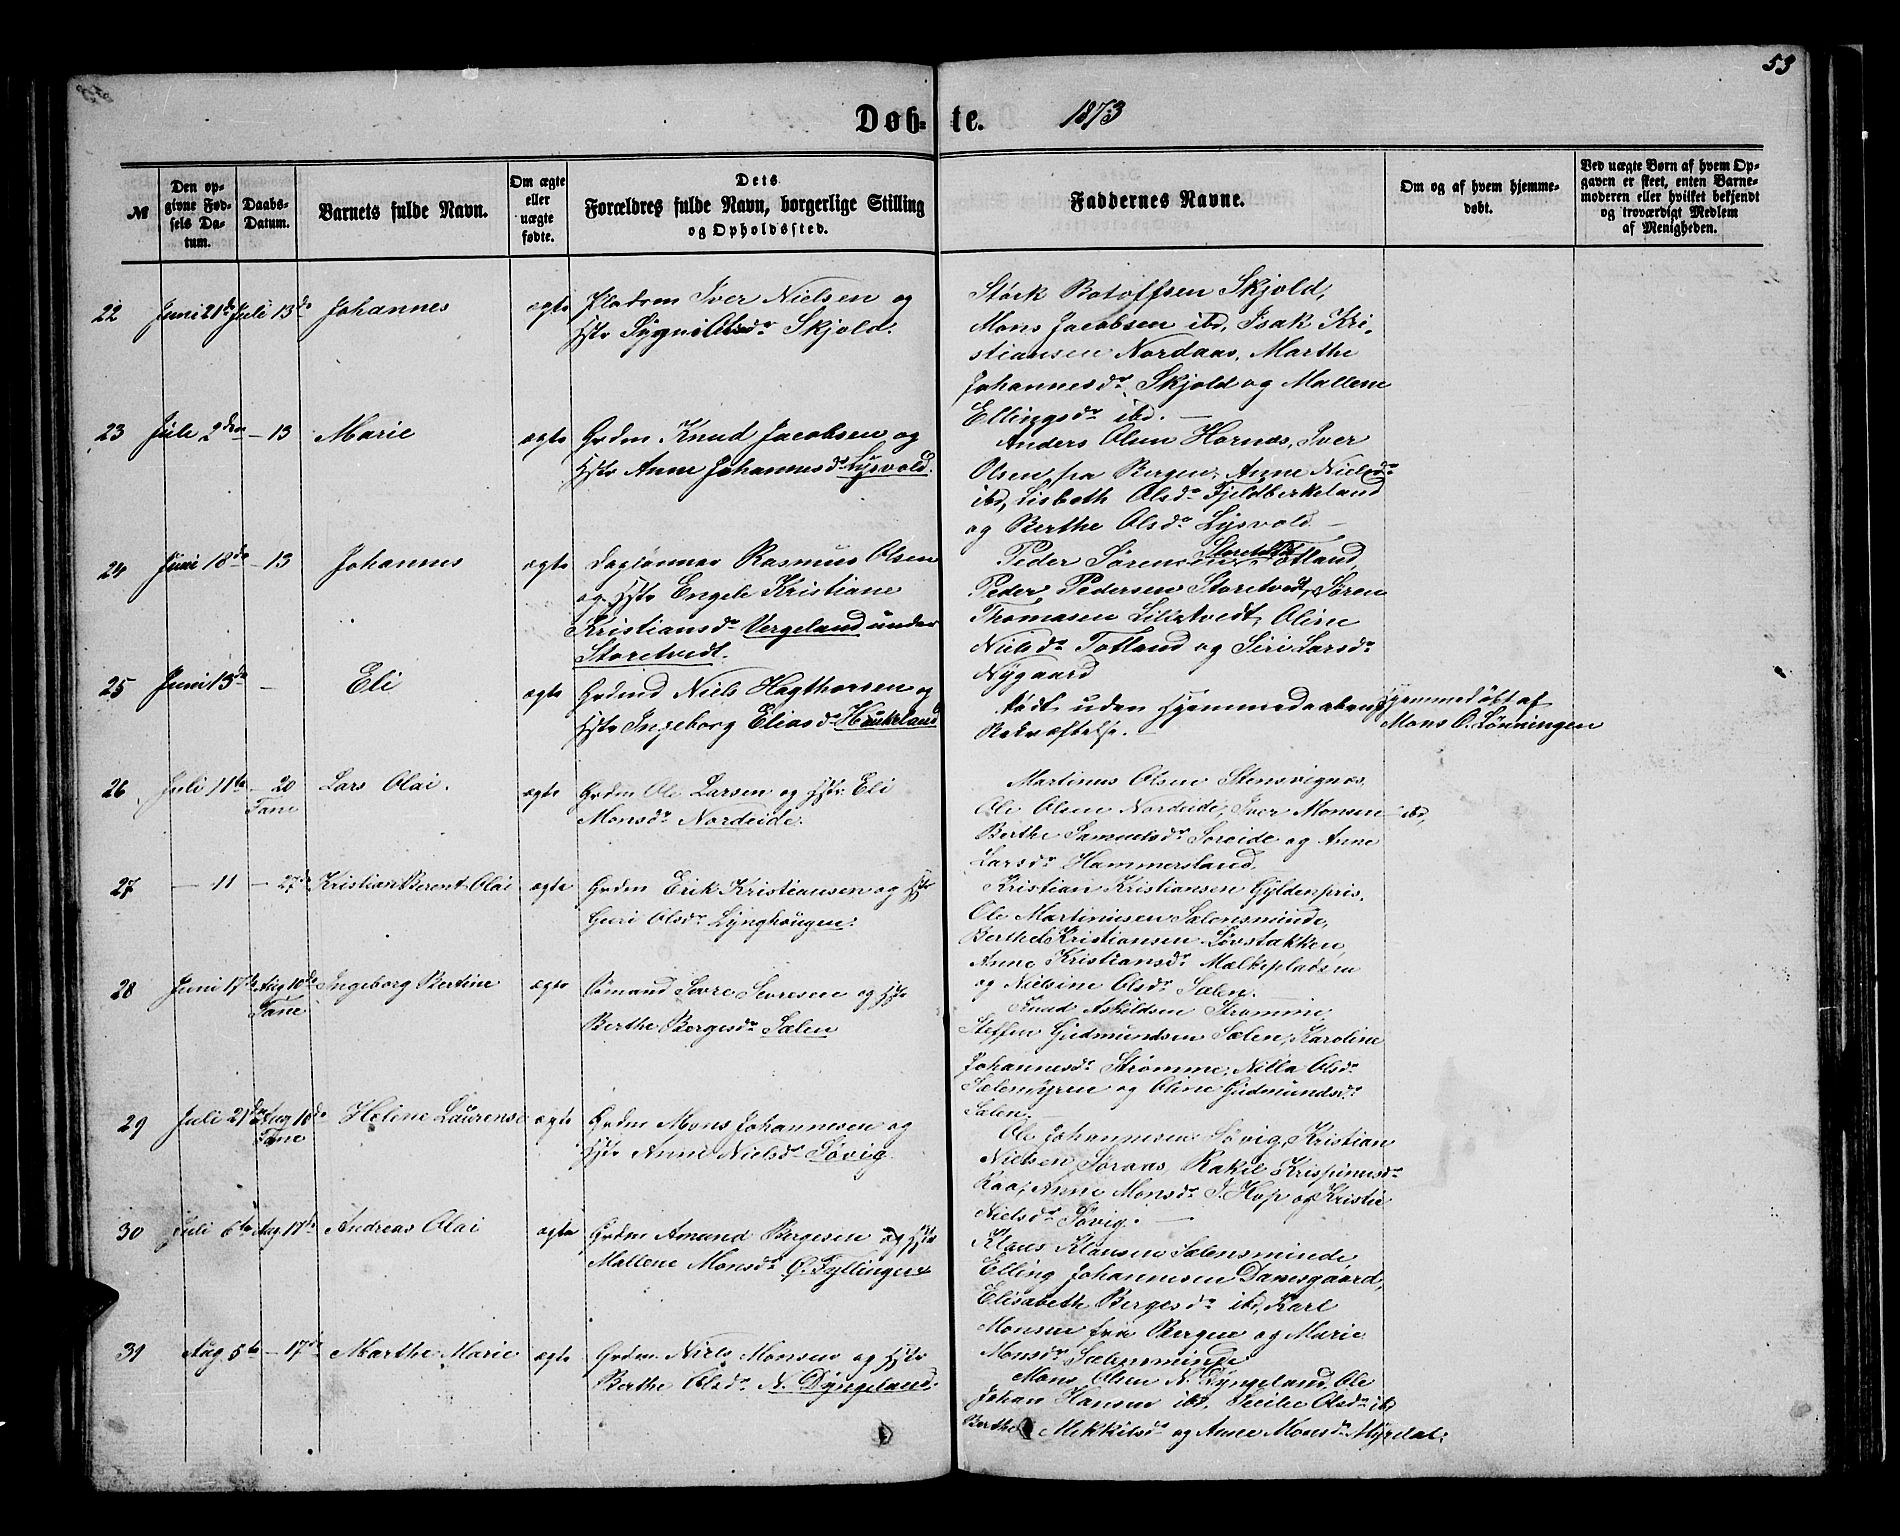 53
Døbte. 1873
№
Den opgivne Fødsels Datum.
Daabs-Datum.
Barnets fulde Navn.
Om ægte eller uægte fødte.
Dets Forældres fulde Navn, borgerlige Stilling og Opholdssted.
Faddernes Navne.
Om og af hvem hjemmedøbt.
Ved uægte Børn af hvem Opgaven er skeet, enten Barnemoderen eller hvilket bekjendt og troværdigt Medlem af Menigheden.
22 Juni 21de Juli 13de Johannes ægte
Pladsm Iver Nielsen og
Hstr Sygni Olsdr Skjold.
Størk Botolfsen Skjold,
Mons Jacobsen ibd, Isak Kri-
stiansen Nordaas, Marthe
Johannesdr Skjold og Mallene
Ellingsdr ibd. —
23 Juli 2den — 13 Marie ægte
Grdm Knud Jacobsen og
Hstr Anne Johannesdr Lysvold.
Anders Olsen Hornæs, Iver
Olsen fra Bergen, Anne Nielsdr
ibd, Lisbeth Olsdr Fjeldberkeland
og Berthe Olsdr Lysvold —
24 Juni 18de — 13 Johannes ægte
Daglønner Rasmus Olsen
og Hstr Engele Kristiane
Kristiansdr Vergeland under
Storetvedt.
Peder Sørensen Totland,
Peder Pedersen Storetvedt, Søren
Thomasen Lilletvedt, Oline
Nielsdr Totland og Siri Larsdr
Nygaard
25 Juni 13de — Eli ægte
Grdmd Niels Hagthorsen og
Hstr Ingeborg Eliasdr Haukeland
død uden Hjemmedaabens
Bekræftelse.
Hjemmedøbt af
Mons O. Lønningen
26 Juli 11te — 20 Fane Lars Olai. ægte
Grdm Ole Larsen og Hstr Eli
Monsdr Nordeide.
Martinus Olsen Stensvignæs,
Ole Olsen Nordeide, Iver Monsen ibd,
Berthe Samuelsdr Søreide og Anne
Larsdr Hammersland.
27 — 11 — 27de Kristian Berent Olai ægte
Grdm Erik Kristiansen og Hstr
Guri Olsdr Lynghaugen.
Kristian Kristiansen Gyldenpris,
Ole Martinusen Sælensminde,
Berthel Kristiansen Løvstakken,
Anne Kristiansdr Malkepladsen
og Nielsine Olsdr Sælen. —
28 Juni 17de Aug 10de Fane Ingeborg Bertine ægte
Sjur Sjursen og Hstr
Berthe Bergesdr Sælen
Knud Askildsen Strømme,
Steffen Gudmundsen Sælen, Karoline
Johannesdr Strømme, Nilla Olsdr
Sælemyren og Oline Gudmundsdr
Sælen. —
29 Juli 21de Aug 10de Fane Heline Laurense ægte
Grdm Mons Johannesen og
Hstr Anne Nielsdr Søvig
Ole Johannesen Søvig, Kristian
Nielsen Søraas, Rakel Krispinusdr
Raa, Anne Monsdr S. Hop og Kristie
Nielsdr Søvig. —
30 Juli 6te Aug 17de Andreas Olai ægte
Grdm Amund Bergesen og Hstr
Mallene Monsdr Ø. Fyllingen
Klaus Klausen Sælensminde
Elling Johannesen Damsgaard,
Elisabeth Bergesdr ibd, Karl
Monsen fra Bergen og Marie
Monsdr Sælensminde
31 Aug 5te — 17de Marthe Marie ægte
Grdm Niels Monsen og Hstr
Berthe Olsdr N. Dyngeland.
Mons Olsen N. Dyngeland, Ole
Johan Hansen ibd, Secilie Olsdr ibd
Berthe Mikkelsdr og Anne Monsdr Myrdal.